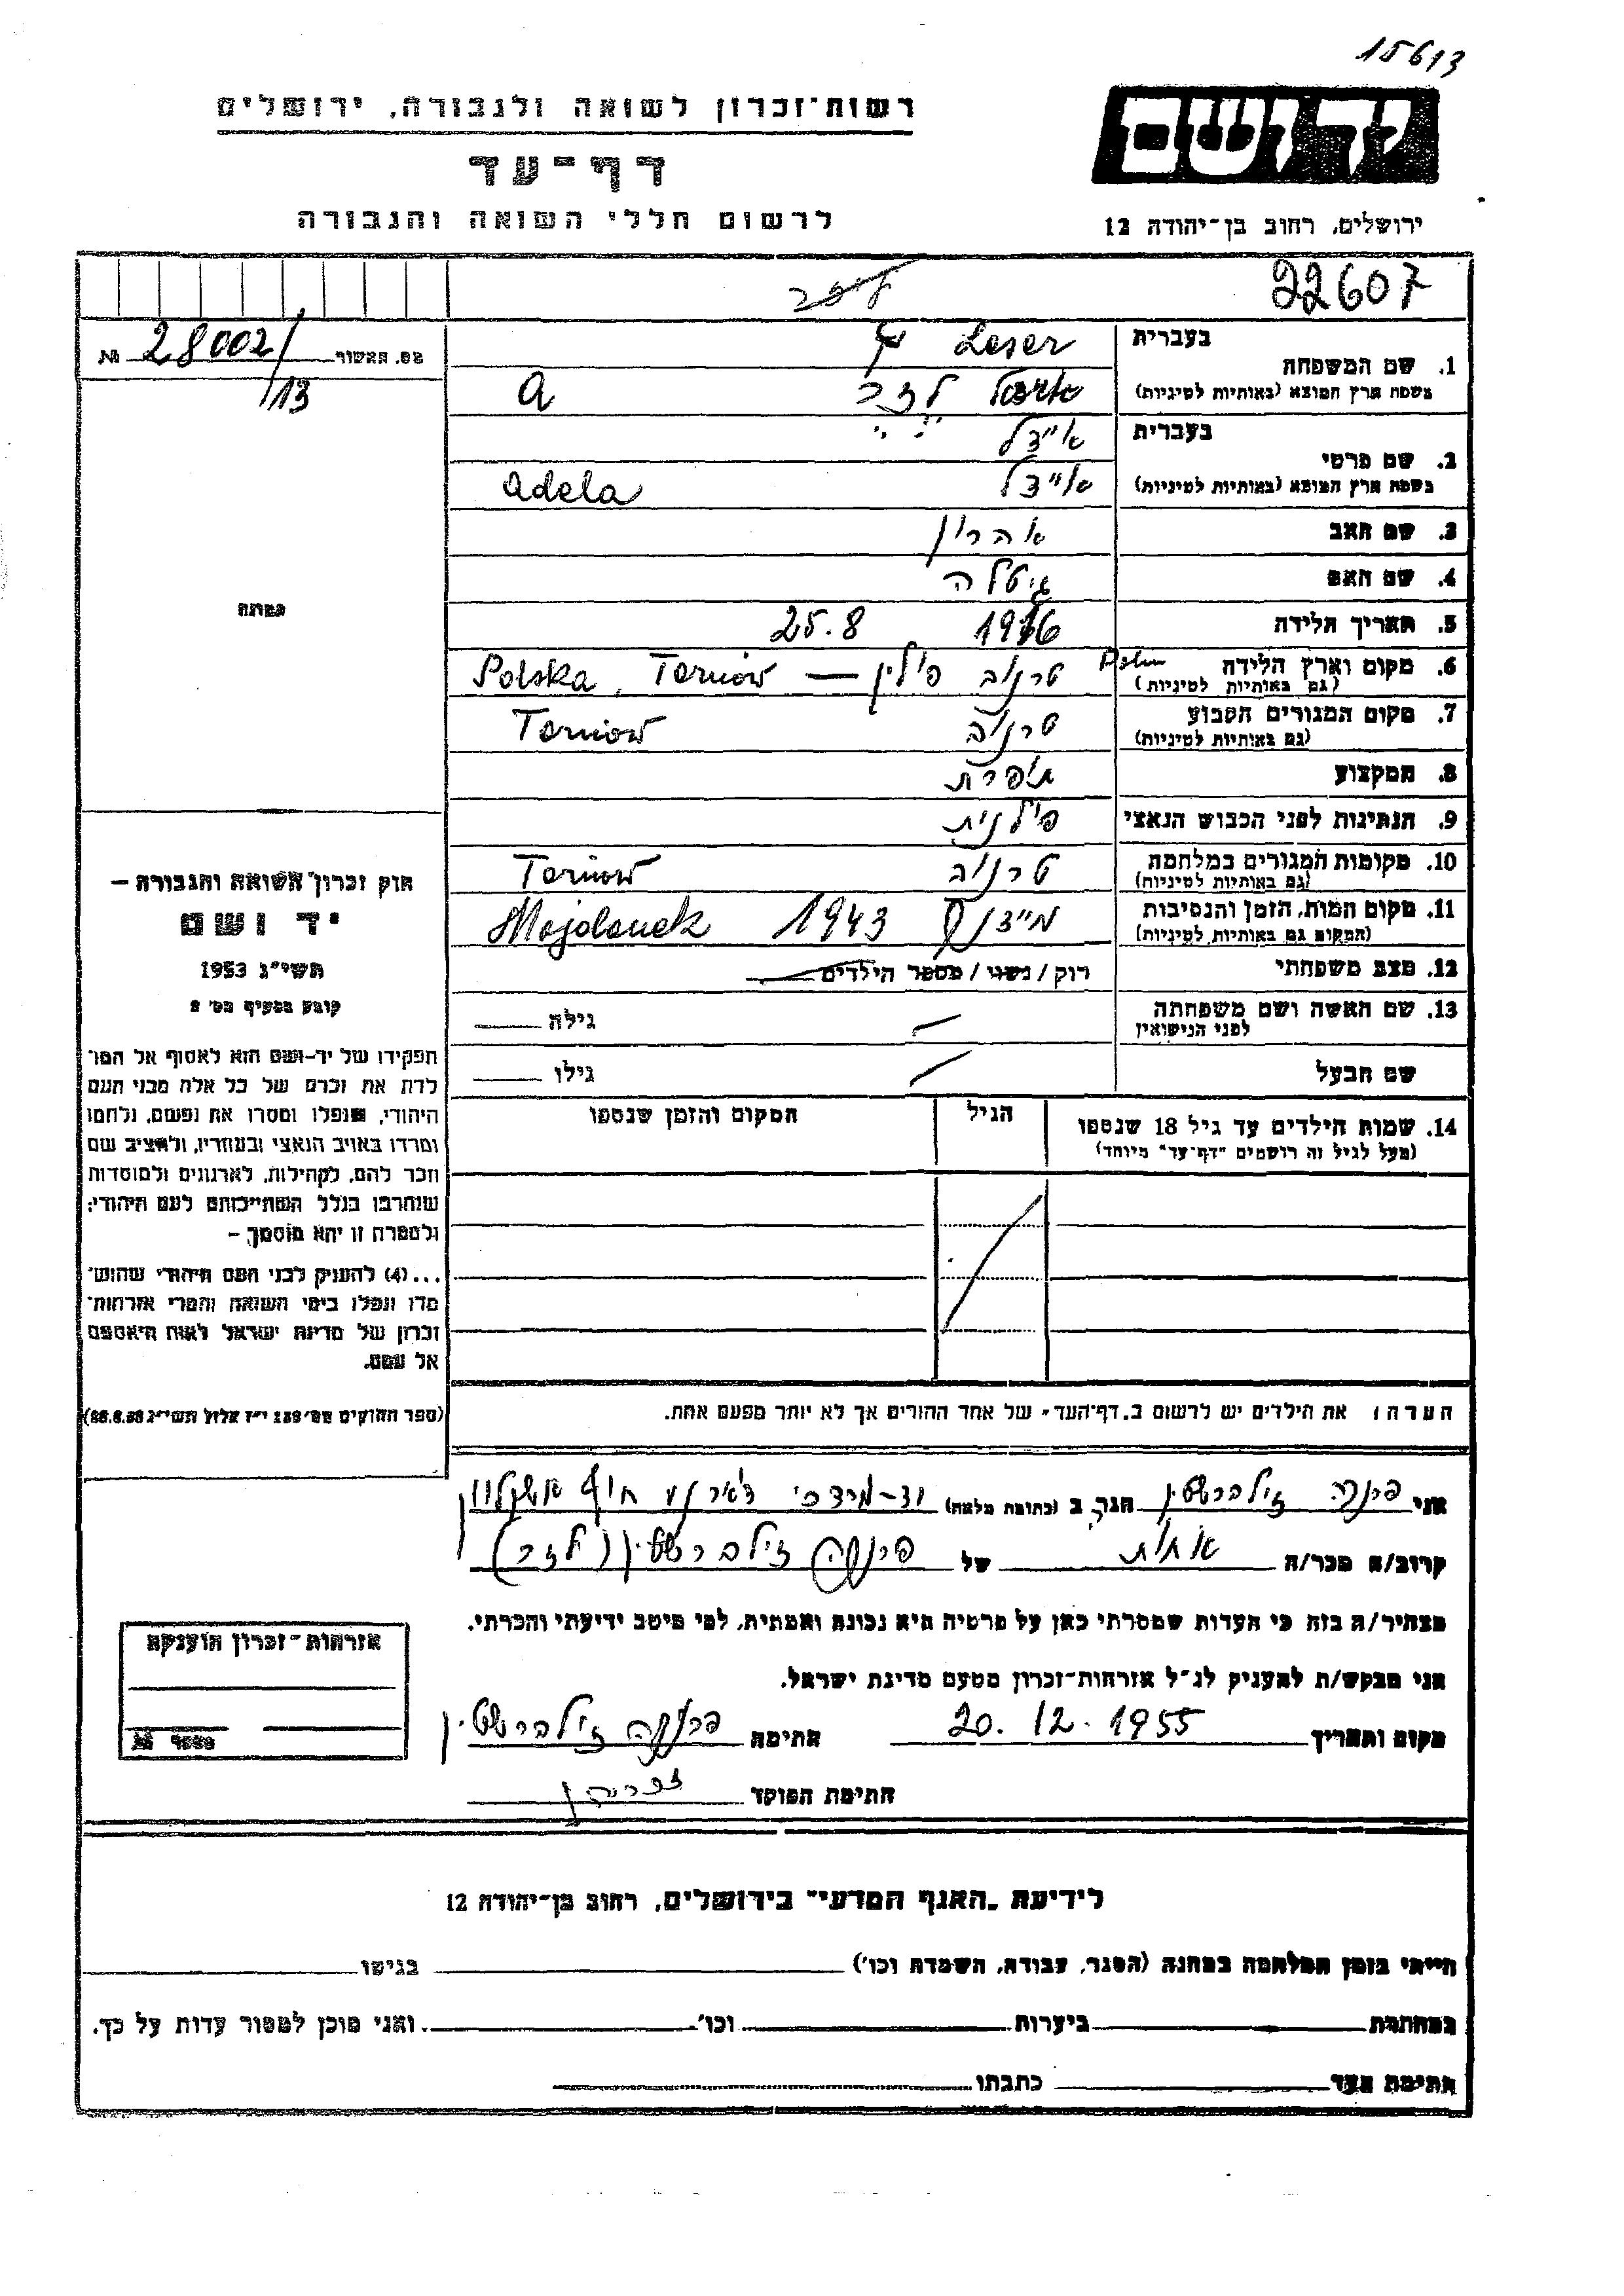 15613
רשות־זכרון לשואה ולגבורה, ירושלים
יד ושם
דף־עד
לרשום חללי השואה והגבורה
ירושלים, רחוב בן־יהודה 12
22607
בעברית
Leser
1. שם המשפחה
בשפת ארץ המוצא (באותיות לטיניות)
לזר
a
מס. האשור 28002/ №
/13
בעברית
איידל
2. שם פרטי
בשפת ארץ המוצא (באותיות לטיניות)
איידל
Adela
3. שם האב
אהרון
4. שם האם
גיטלה
5. תאריך הלידה
1916
25.8
6. מקום וארץ הלידה
(גם באותיות לטיניות)
טרנוב פולין — Polska, Tarnów
7. מקום המגורים הקבוע
(גם באותיות לטיניות)
טרנוב
Tarnów
8. המקצוע
תופרת
9. הנתינות לפני הכבוש הנאצי
פולנית
10. מקומות המגורים במלחמה
(גם באותיות לטיניות)
טרנוב
Tarnów
11. מקום המות, הזמן והנסיבות
(המקום גם באותיות לטיניות)
1943
Majdanek
12. מצב משפחתי
רוק / נשוי / מספר הילדים
13. שם האשה ושם משפחתה
לפני הנישואין
גילה
שם הבעל
גילו
14. שמות הילדים עד גיל 18 שנספו
(מעל לגיל זה רושמים "דף־עד" מיוחד)
הגיל
המקום והזמן שנספו
הערה: את הילדים יש לרשום ב"דף־העד" של אחד ההורים אך לא יותר מפעם אחת.
תמונה
חוק זכרון השואה והגבורה –
יד ושם
תשי"ג 1953
קובע בסעיף מס' 2
תפקידו של יד־ושם הוא לאסוף אל המו־
לדת את זכרם של כל אלה מבני העם
היהודי, שנפלו ומסרו את נפשם, נלחמו
ומרדו באויב הנאצי ובעוזריו, ולהציב שם
וזכר להם, לקהילות, לארגונים ולמוסדות
שנחרבו בגלל השתייכותם לעם היהודי;
ולמטרה זו יהא מוסמך –
...(4) להעניק לבני העם היהודי שהוש־
מדו ונפלו בימי השואה והמרי אזרחות־
זכרון של מדינת ישראל לאות היאספם
אל עמם.
(ספר החוקים מס' 132 י"ז אלול תשי"ג 28.8.53)
אני פרנקה זילברשטין הגר ב (כתובת מלאה) יד-מרדכי ד.אר נע חוף אשקלון
קרוב/ה מכר/ה אחות של פרנקה זילברשטין (לזר)
מצהיר/ה בזה כי העדות שמסרתי כאן על פרטיה היא נכונה ואמתית, לפי מיטב ידיעתי והכרתי.
אני מבקש/ת להעניק לנ"ל אזרחות־זכרון מטעם מדינת ישראל.
מקום ותאריך 20.12.1955 חתימה פרנקה זילברשטין
חתימת הפוקד
אזרחות־זכרון הוענקה
מספר №
לידיעת "האגף המדעי" בירושלים, רחוב בן־יהודה 12
הייתי בזמן המלחמה במחנה (הסגר, עבודה, השמדה וכו') בגיטו
במחתרת ביערות וכו' ואני מוכן למסור עדות על כך.
חתימת העד כתבתו